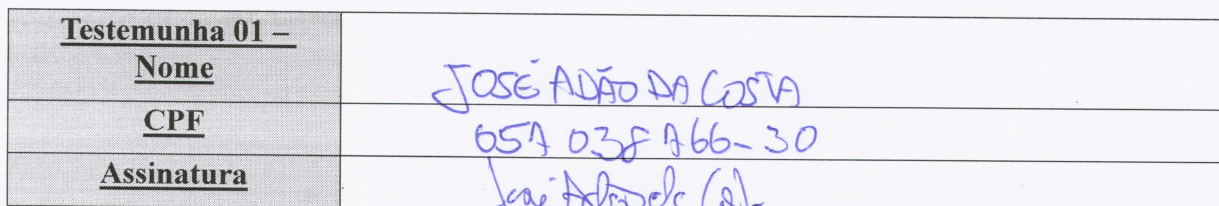 Testemunha 01 –
Nome
JOSÉ ADÃO DA COSTA
CPF
051 038 166-30
Assinatura
José Adão da